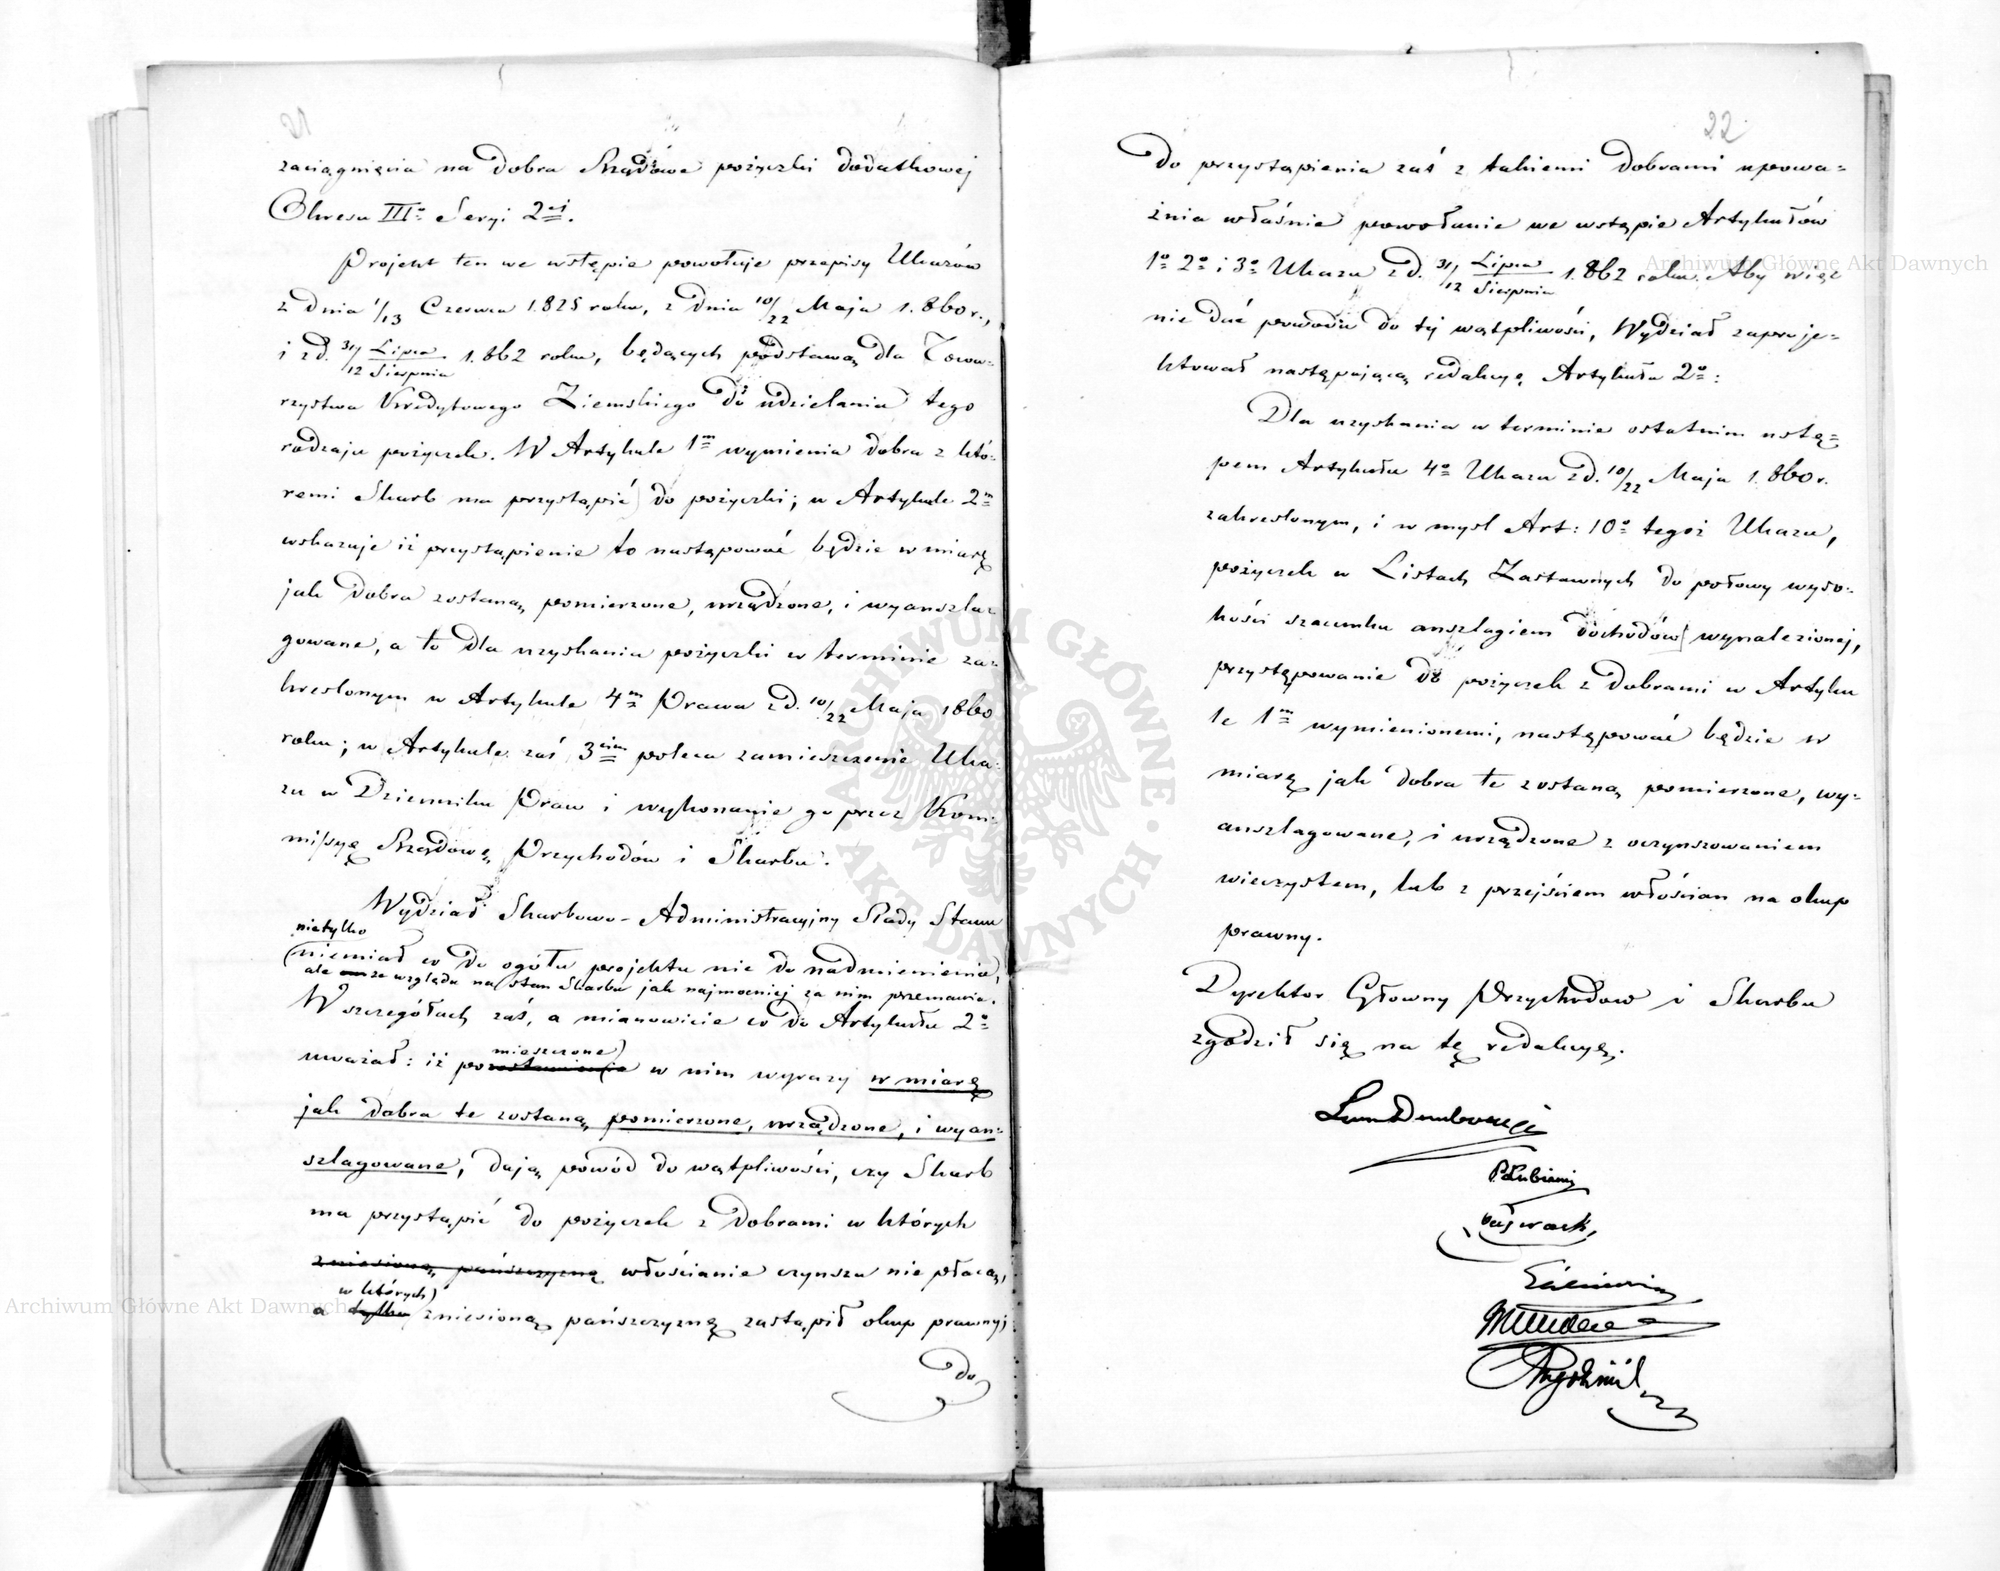 21
zaciągnięcia na dobra Rządowe pożyczki dodatkowej
Okresu III° Seryi 2ej.
Projekt ten we wstępie powołuje przepisy Ukazów
z dnia 1/13 Czerwca 1.825 roku, z dnia 10/22 Maja 1.860 r.,
i z d. 31/12 Lipca/Sierpnia 1.862 roku, będących podstawą dla Towa-
rzystwa Kredytowego Ziemskiego do udzielania tego
rodzaju pożyczek. W Artykule 1m wymienia dobra z któ-
remi Skarb ma przystąpić do pożyczki; w Artykule 2m
wskazuje iż przystąpienie to następować będzie w miarę
jak dobra zostaną pomierzone, urządzone, i wyanszla-
gowane, a to dla uzyskania pożyczki w terminie za-
kreślonym w Artykule 4m Prawa z d. 10/22 Maja 1860
roku; w Artykule zaś 3cim poleca zamieszczenie Uka-
zu w Dzienniku Praw i wykonanie go przez Kom-
missyę Rządową Przychodów i Skarbu.
Wydział Skarbowo-Administracyjny Rady Stanu
nietylko
niemiał co do ogółu projektu nic do nadmienienia,
ale ze względu na stan Skarbu jak najmocniej za nim przemawia.
W szczegółach zaś, a mianowicie co do Artykułu 2°
mieszczone
uważał: iż po w nim wyrazy w miarę
jak dobra te zostaną pomierzone, urządzone, i wyan-
szlagowane, dają powód do wątpliwości, czy Skarb
ma przystąpić do pożyczek z dobrami w których
zniesioną pańszczyzną włościanie czynszu nie płacą,
w których
a tylko zniesioną pańszczyznę zastąpił okup prawny;
do
22
do przystąpienia zaś z takiemi dobrami upowa-
żnia właśnie powołanie we wstępie Artykułów
1° 2° i 3° Ukazu z d. 31/12 Lipca/Sierpnia 1.862 roku. Aby więc
nie dać powodu do tej wątpliwości, Wydział zaproje-
ktował następującą redakcyę Artykułu 2°:
Dla uzyskania w terminie ostatnim ustę-
pem Artykułu 4° Ukazu z d. 10/22 Maja 1.860 r.
zakreślonym, i w myśl Art: 10° tegoż Ukazu,
pożyczek w Listach Zastawnych do połowy wyso-
kości szacunku anszlagiem dochodów wynalezionej,
przystępowanie do pożyczek z dobrami w Artyku
le 1m wymienionemi, następować będzie w
miarę jak dobra te zostaną pomierzone, wy-
anszlagowane, i urządzone z oczynszowaniem
wieczystem, lub z przejściem włościan na okup
prawny.
Dyrektor Główny Przychodów i Skarbu
zgodził się na tę redakcyę.
Archiwum Główne Akt Dawnych
Archiwum Główne Akt Dawnych
· ARCHIWUM GŁÓWNE · AKT DAWNYCH